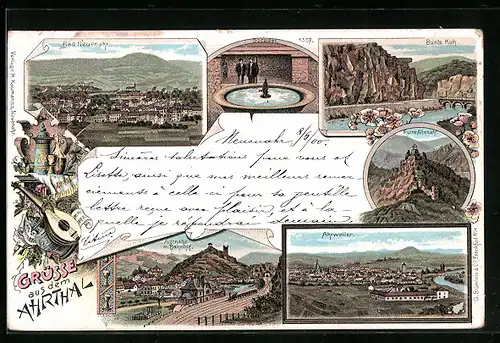 Bad Neuenahr.
Sprudel 1307.
Bunte Kuh.
Neuenahr 8/6/00.
Sincères salutations pour vous et
Lisette ainsi que mes meilleurs remer-
ciements à celle-ci pour sa gentille
lettre reçue avec plaisir, et à la-
quelle je répondrai demain
Ruine Altenahr.
Altenahr
m. Bahnhof.
Ahrweiler.
GRÜSSE
aus dem
AHRTHAL